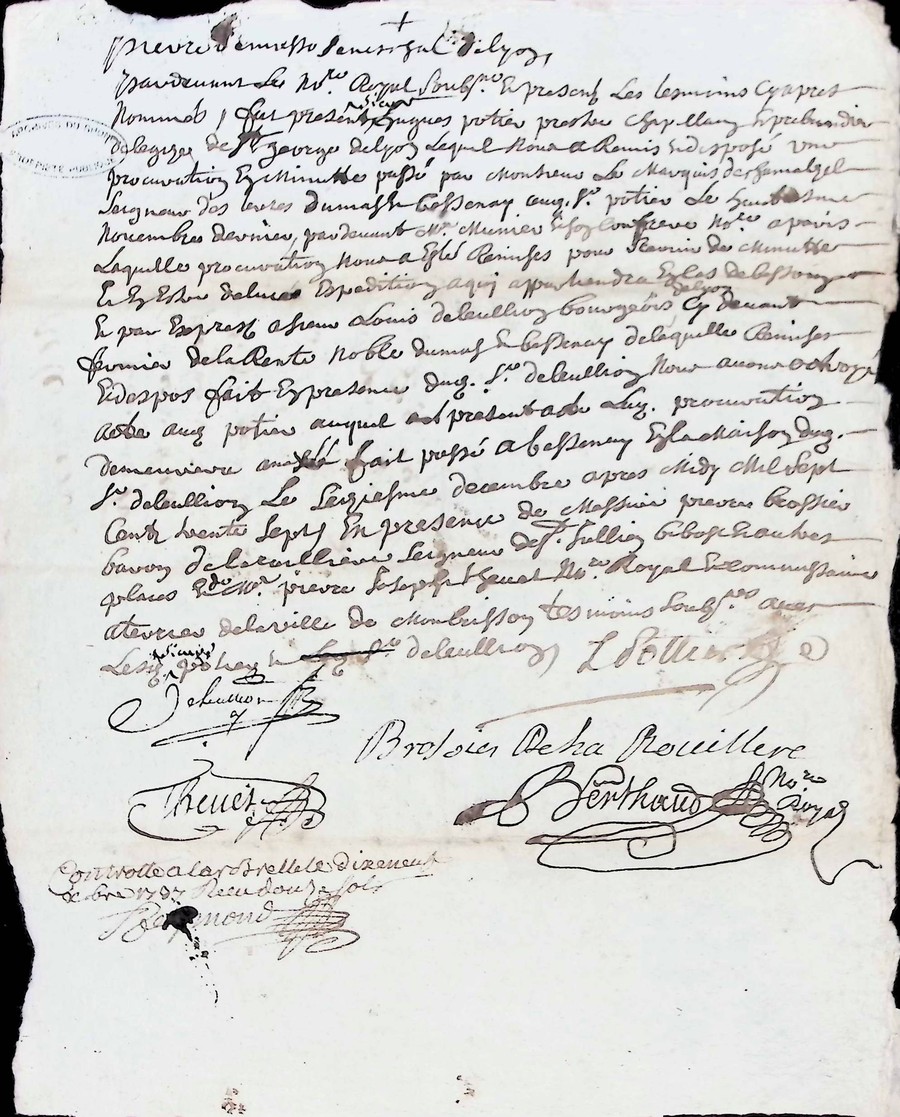 pardevant Le No.re Royal Soubs.né En presence Les tesmoins Cyapres
Nommés fut present sieur hugues potier prestre Chapellain Et prebendier
delegise de St. george delyon Lequel Nous a Remis Et desposé une
procuration En Minutte passé par Monsieur Le Marquis de
Seigneur des terres dumas Et bessenay aud. Sr. potier Le
Novembre dernier, pardevant Me. Munier Et son Confrere No.re a paris
Laquelle procuration Nous a Esté Remises pour Servir de Minutte
Et En Estre delivré Expedition a qui appartiendra
Et par Expres a sieur Louis deleullion bourgeois delyon Cy devant
fermier dela Rente Noble dumas Et bessenay delaquelle Remises
Et despos fait En presence dud. Sr. deleullion Nous avons octroyé
acte aud potier auquel procuration
demeurera fait passé a bessenay En la Maison dud.
Sr. deleullion Le Seiziesme decembre apres Midy Mil Sept
Cent trente Sept En presence de Messire pierre brossier
baron dela rouilliere Seigneur de St. Jullien bibost Et autres
places Et de Me. pierre Joseph thevet No.re Royal Et commissaire
a terrier dela ville de Monbrisson tesmoins Soubs.nés avec
Led. sieur potier Et deleullion L Pottier
Deleullion
Brossier De La Rouillere
Thevet
Berthaud No.re Royal
Controllé a Larbrelle le dixneuf
xbre 1737 Receu douze sols